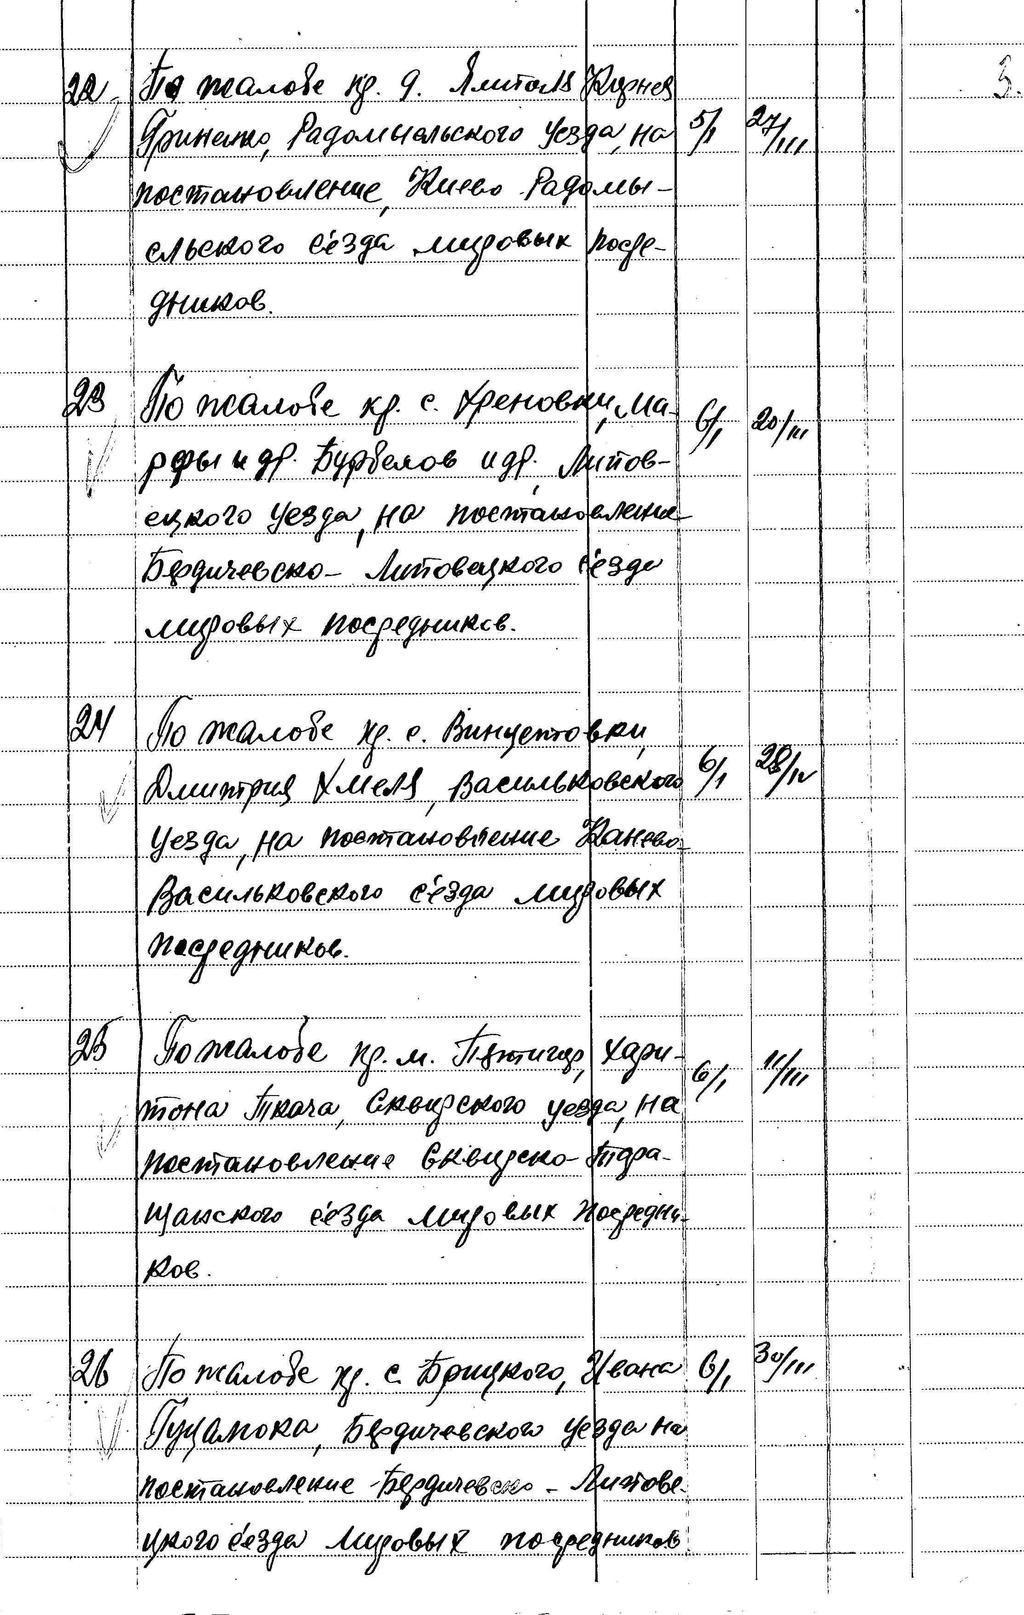 3.
22 По жалобе кр. д. Ялитоля Корнея
Гриненко, Радомысльского уезда, на 5/I 27/III
постановление, Киево-Радомы-
сльского с'езда мировых посре-
дников.
23 По жалобе кр. с. Хреновки, Ма-
рфы и др. Бурбелов и др. Липов- 6/I 20/III
ецкого уезда, на постановление
Бердичевско-Липовецкого с'езда
мировых посредников.
24 По жалобе кр. с. Винцентовки,
Дмитрия Хмеля, Васильковского 6/I 28/IV
уезда, на постановление Канево-
Васильковского с'езда мировых
посредников.
25 По жалобе кр. м. Пятигор, Хари-
тона Ткача, Сквирского уезда, на 6/I 11/III
постановление Сквирско-Тара-
щанского с'езда мировых посредни-
ков.
26 По жалобе кр. с. Брицкого, Ивана 6/I 30/III
Бердичевского уезда на
постановление Бердичевско-Липове-
цкого с'езда мировых посредников.